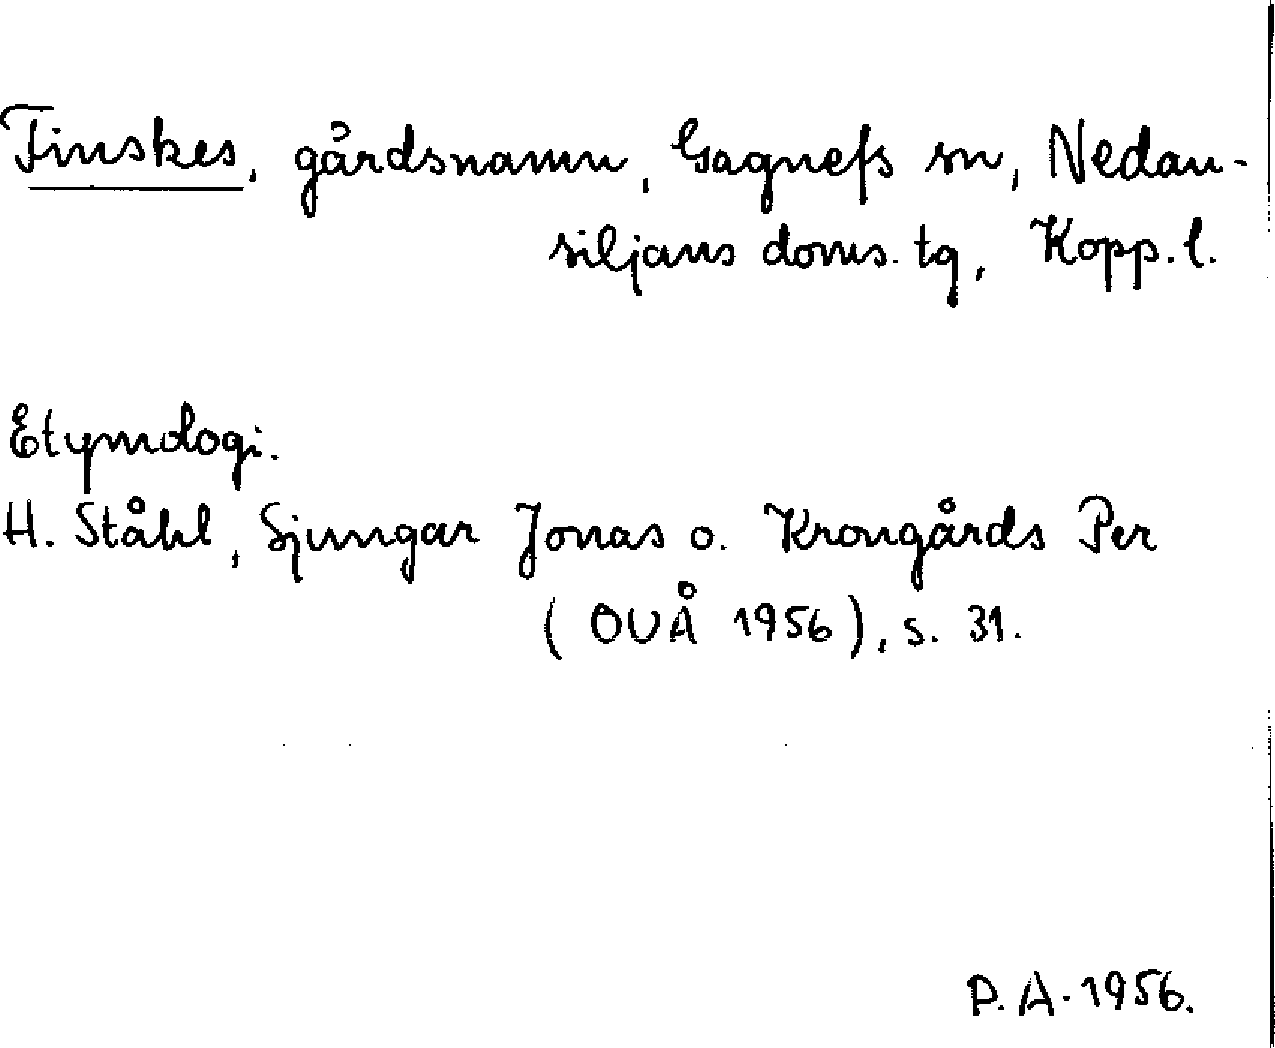 Finskes, gårdsnamn, Gagnefs sn, Nedan-
siljans doms. tg, Kopp. l.
Etymologi.
H. Ståhl, Sjungar Jonas o. Krongårds Per
(OUÅ 1956), s. 31.
P. A. 1956.